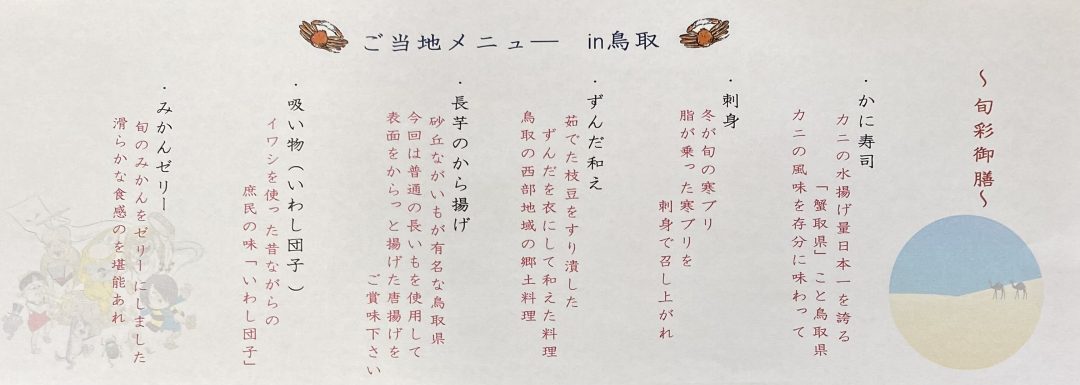 ご当地メニュー in鳥取
～旬彩御膳～
・かに寿司
カニの水揚げ量日本一を誇る
「蟹取県」こと鳥取県
カニの風味を存分に味わって
・刺身
冬が旬の寒ブリ
脂が乗った寒ブリを
刺身で召し上がれ
・ずんだ和え
茹でた枝豆をすり潰した
ずんだを衣にして和えた料理
鳥取の西部地域の郷土料理
・長芋のから揚げ
砂丘ながいもが有名な鳥取県
今回は普通の長いもを使用して
表面をからっと揚げた唐揚げを
ご賞味下さい
・吸い物（いわし団子）
イワシを使った昔ながらの
庶民の味「いわし団子」
・みかんゼリー
旬のみかんをゼリーにしました
滑らかな食感のを堪能あれ